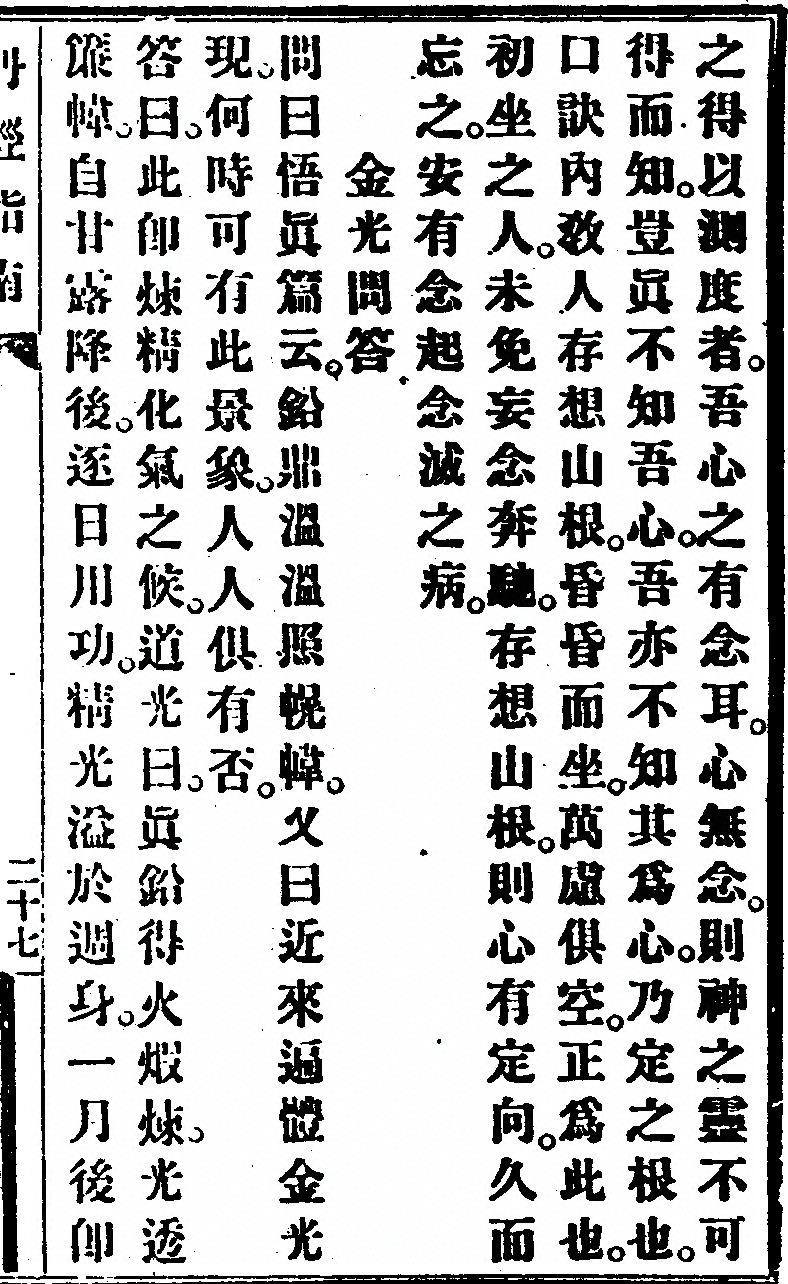 之得以測度者。吾心之有念耳。心無念。則神之靈不可
得而知。豈眞不知吾心。吾亦不知其爲心。乃定之根也。
口訣內教人存想山根。昏昏而坐。萬慮俱空。正爲此也。
初坐之人。未免妄念奔馳。存想山根。則心有定向。久而
忘之。安有念起念滅之病。
金光問答
問曰悟眞篇云。鉛鼎溫溫照幌幃。又曰近來遍體金光
現。何時可有此景象。人人俱有否。
答曰。此卽煉精化氣之候。道光曰。眞鉛得火煅煉。光透
簾幃。自甘露降後。逐日用功。精光溢於週身。一月後卽
丹經指南
二十七